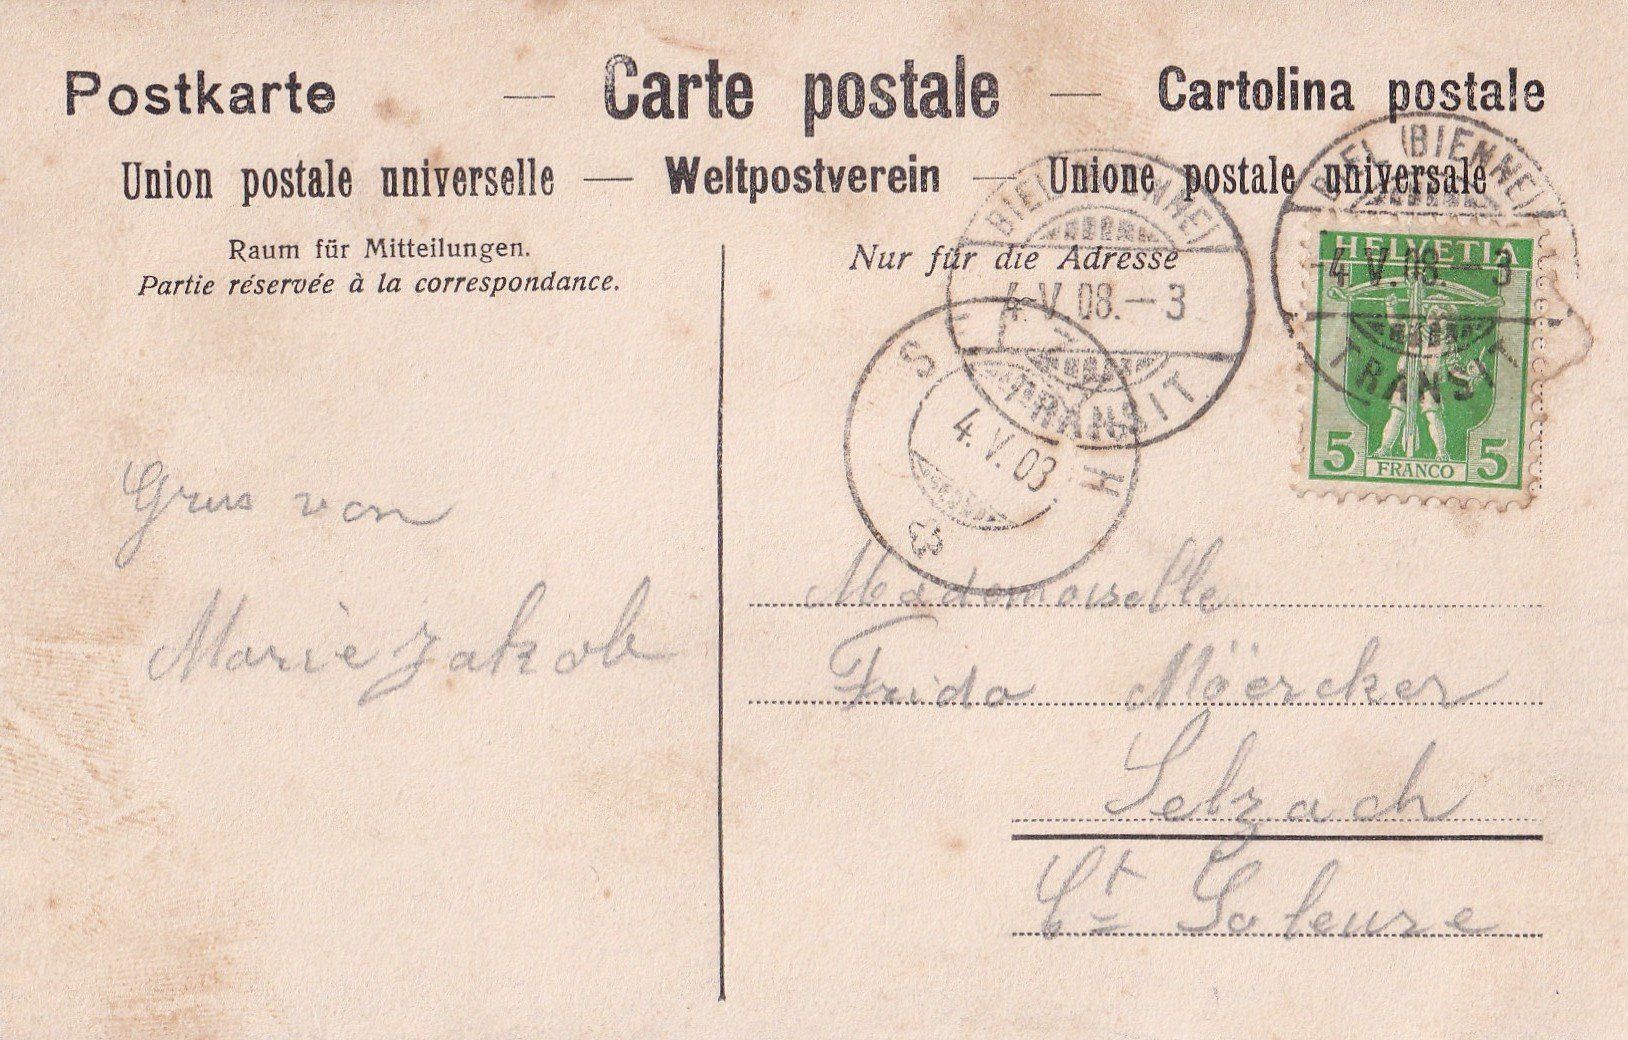 Postkarte — Carte postale — Cartolina postale
Union postale universelle — Weltpostverein — Unione postale universale
Raum für Mitteilungen.
Partie réservée à la correspondance.
Nur für die Adresse
BIEL (BIENNE)
4.V.08.–3
TRANSIT
BIEL (BIENNE)
4.V.08.–3
TRANSIT
HELVETIA
5 FRANCO 5
4.V.08
Grus von
Marie Jakob
Mademoiselle
Frida Möercker
Selzach
Ct Soleure